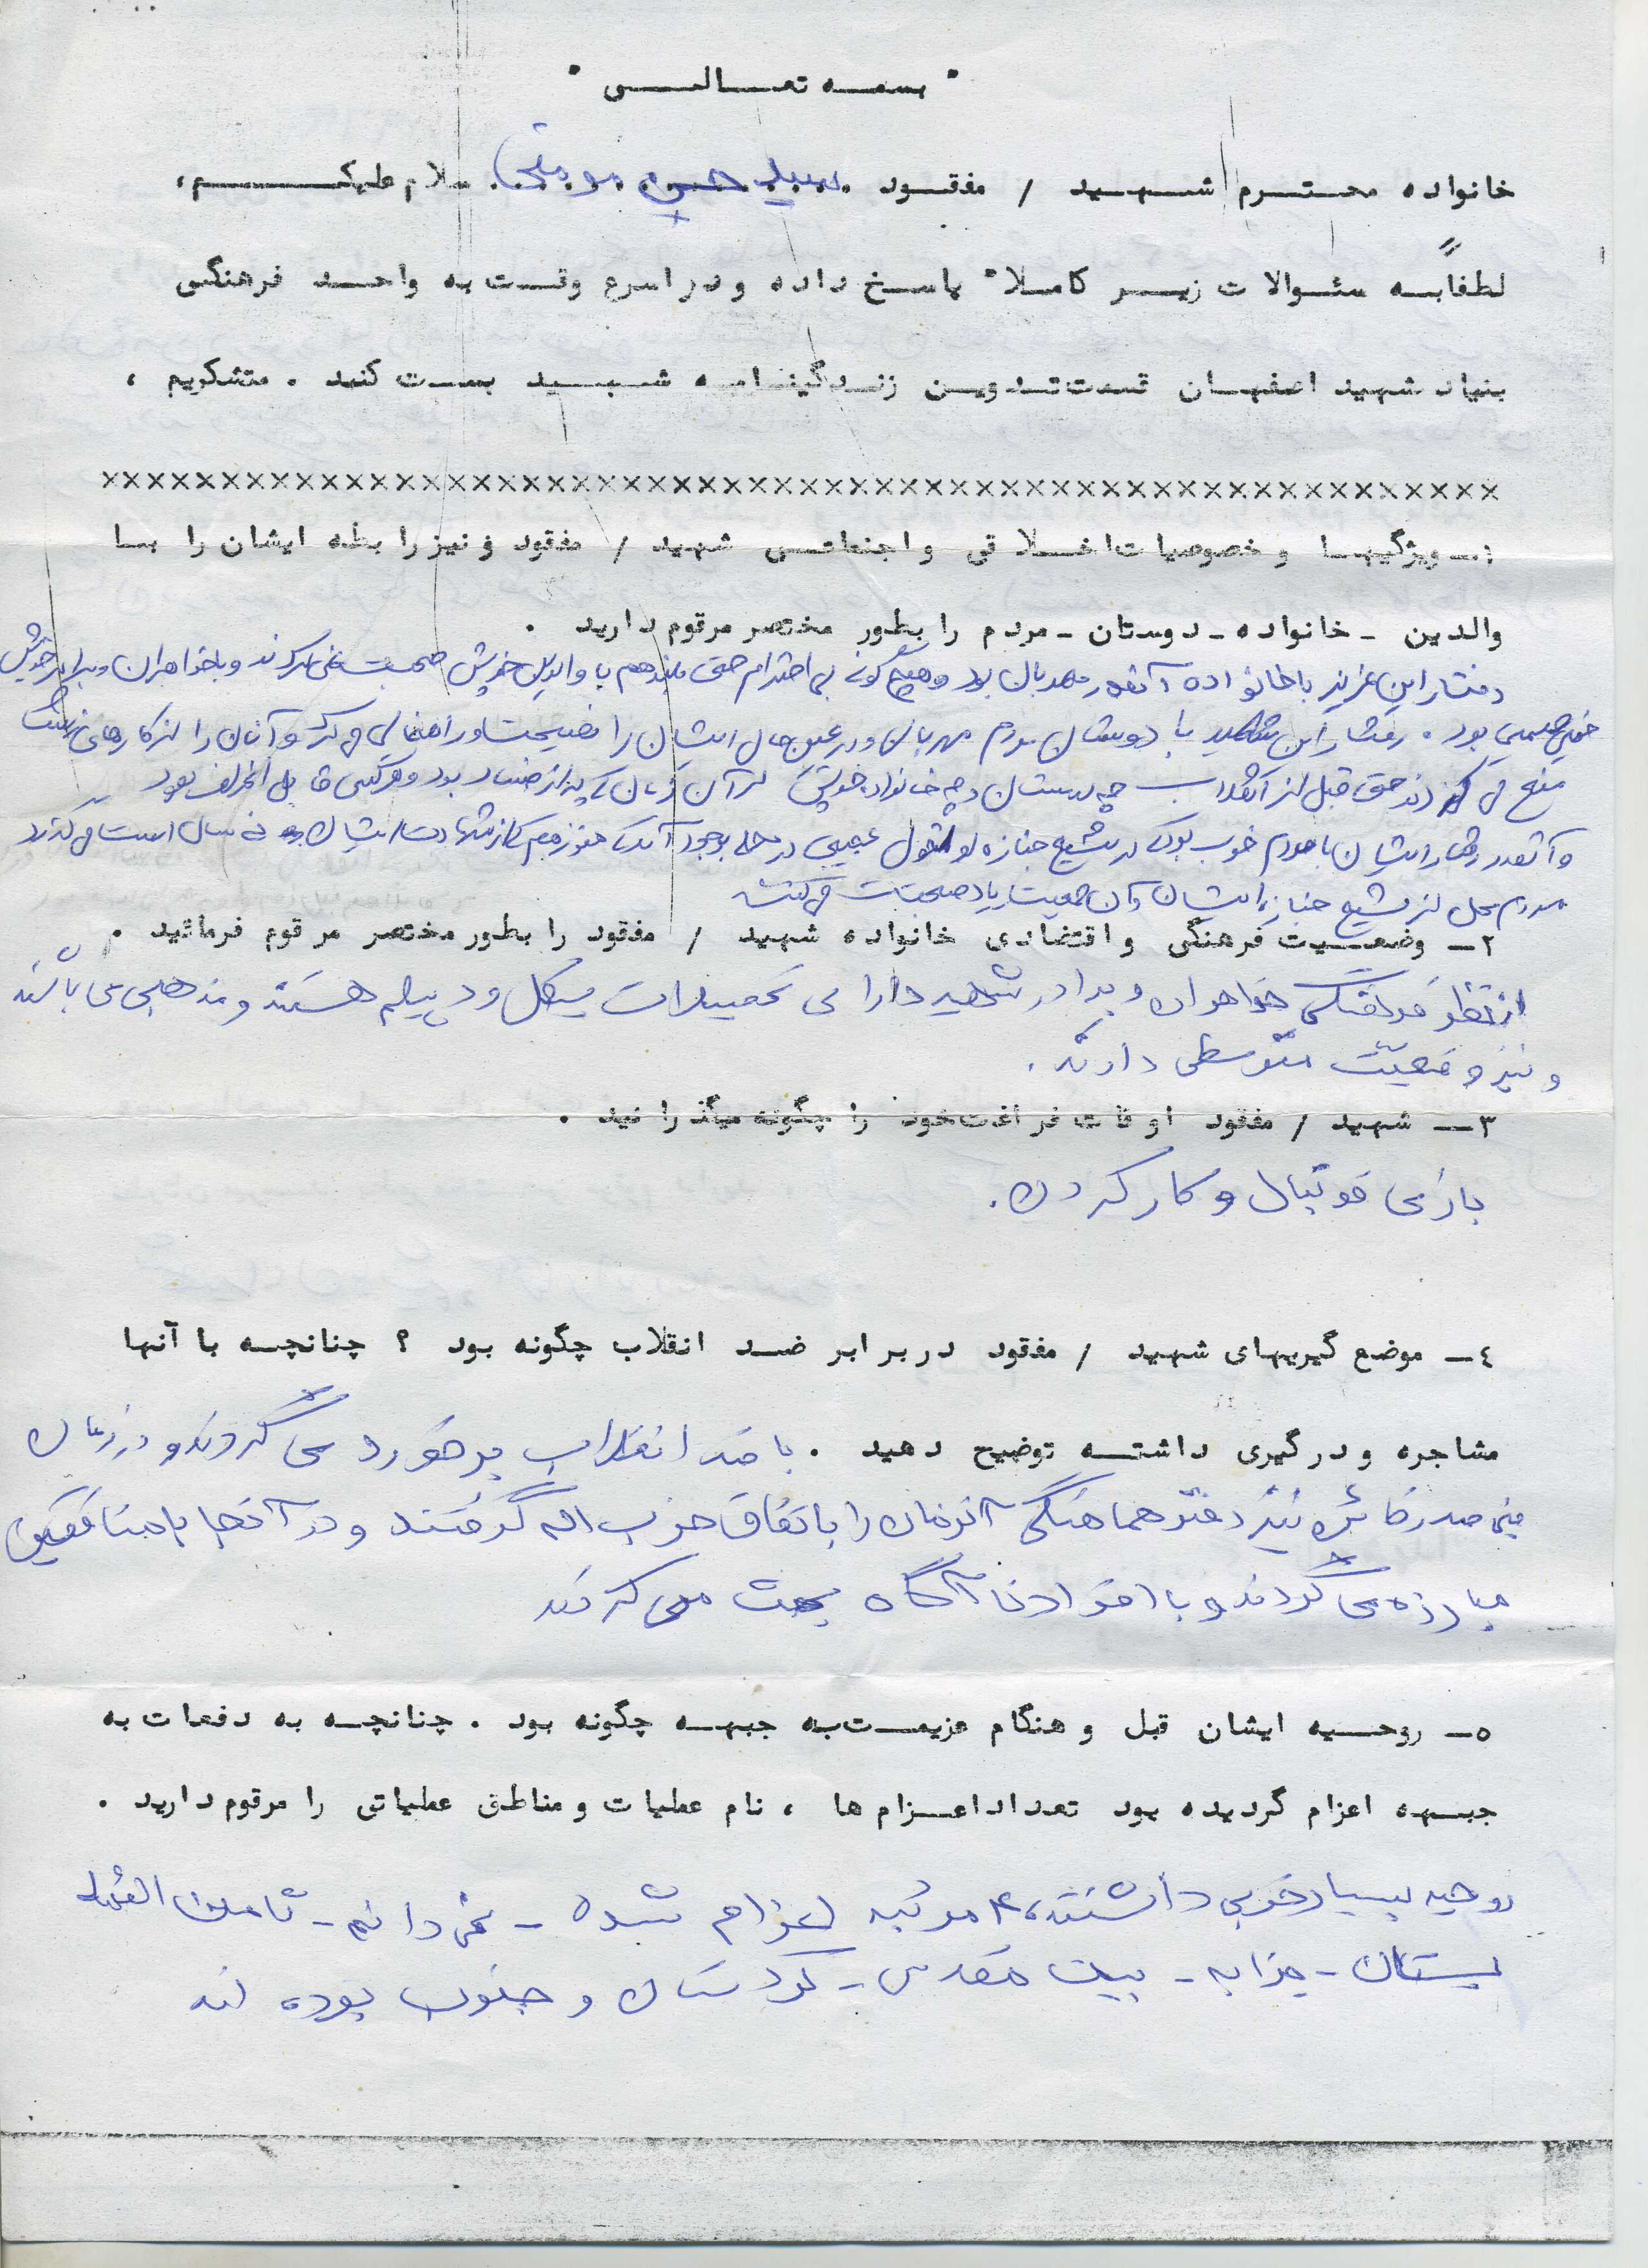 " بسمه تعالی "
خانواده محترم شهید / مفقود سید حسین سلام علیکم،
لطفاً به سئوالات زیر کاملا" پاسخ داده و در اسرع وقت به واحد فرهنگی
بنیاد شهید اصفهان قسمت تدوین زندگینامه شهید پست کنید . متشکریم ،
xxxxxxxxxxxxxxxxxxxxxxxxxxxxxxxxxxxxxxxxxxxxxxxxxxxxxxxx
۱ــ ویژگیها و خصوصیات اخلاقی و اجتماعی شهید / مفقود و نیز رابطه ایشان را با
والدین ـ خانواده ـ دوستان ـ مردم را بطور مختصر مرقوم دارید .
رفتار این عزیز با خانواده آنقدر مهربان بود و هیچ گونه بی احترامی حتی با والدین خویش صحبت نمی کردند و با خواهران و برادر خویش
خیلی صمیمی بود . رفتار این شهید با دوستان مردم مهربان و در عین حال ایشان را نصیحت و راهنمائی می کرد و آنان را از کارهای زشت
منع می کردند حتی قبل از انقلاب چه دبستان و چه خانواده خویش در آن زمان که پر از فساد بود و هر کسی قابل انحراف بود
و آنقدر رفتار ایشان با مردم خوب بود که در تشیع جنازه او عجیبی در محله بوجود آمد که هنوز هم که از شهادت ایشان سال است می گذرد
مردم محل از تشیع جنازه ایشان و آن جمعیت زیاد صحبت می کنند
۲ــ وضعیت فرهنگی و اقتصادی خانواده شهید / مفقود را بطور مختصر مرقوم فرمائید .
از نظر فرهنگی خواهران و برادر شهید دارای تحصیلات سیکل و دیپلم هستند و مذهبی می باشند
و نیز وضعیت متوسطی دارند .
۳ــ شهید / مفقود اوقات فراغت خود را چگونه میگذرانید .
بازی فوتبال و کار کردن .
٤ــ موضع گیریهای شهید / مفقود در برابر ضد انقلاب چگونه بود ؟ چنانچه با آنها
مشاجره و درگیری داشته توضیح دهید . با ضد انقلاب برخورد می کردند و در زمان
بنی صدر نیز دفتر هماهنگی آنزمان را باتفاق حزب اله گرفتند و در آنجا با منافقین
مبارزه می کردند و با افراد ناآگاه بحث می کردند
٥ــ روحیه ایشان قبل و هنگام عزیمت به جبهه چگونه بود . چنانچه به دفعات به
جبهه اعزام گردیده بود تعداد اعزام ها ، نام عملیات و مناطق عملیاتی را مرقوم دارید .
روحیه بسیار خوبی داشتند، ۴ مرتبه اعزام شده ـ نمی دانم ـ ثامن الائمه
بستان ـ چزابه ـ بیت مقدس ـ کردستان و جنوب بوده اند